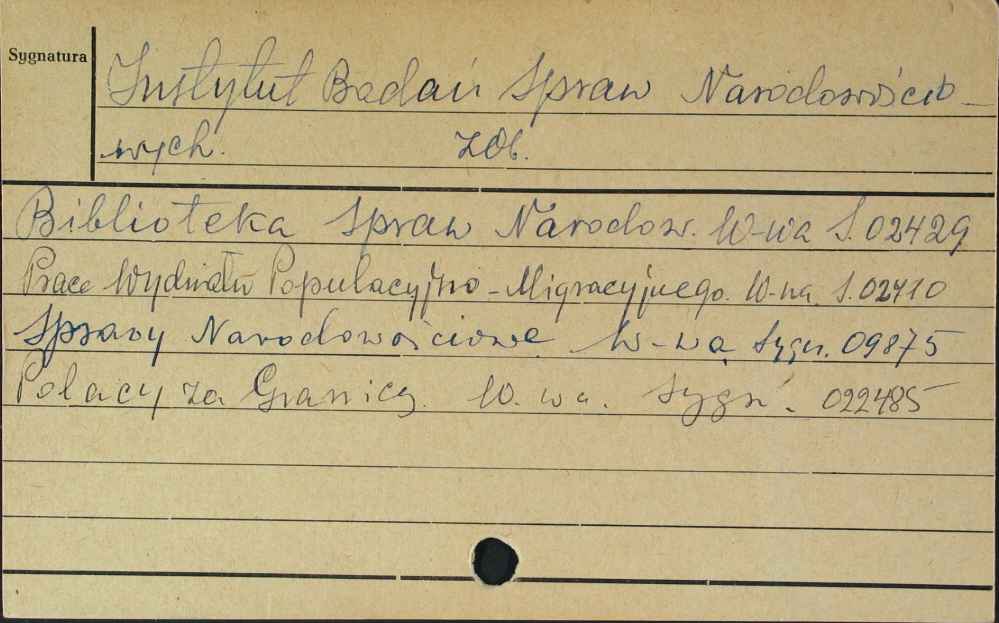 Sygnatura
Instytut Badań Spraw Narodowościo-
wych. Zob.
Biblioteka Spraw Narodow. W-wa S. 02429
Prace Wydziału Populacyjno-Migracyjnego. W-wa. S. 02410
Sprawy Narodowościowe W-wa Sygn. 09875
Polacy za Granicą. W. wa. Sygn. 022485